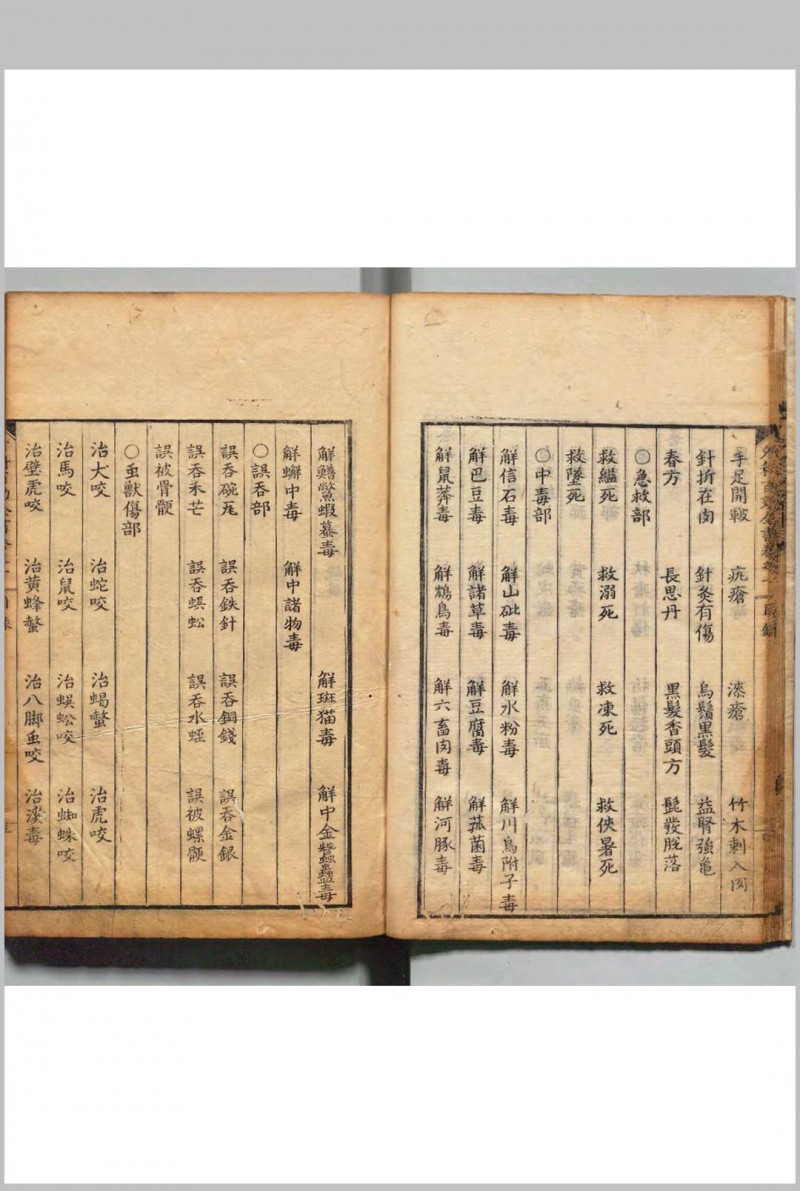 手足開皸 疣瘡 漆瘡 竹木刺入肉
針折在肉 針灸有傷 烏鬚黑髮 益腎強龟
春方 長思丹 黑髮香頭方 髭發脫落
〇急救部
救縊死 救溺死 救凍死 救俠暑死
救墜死
〇中毒部
解信石毒 解山砒毒 解水粉毒 解川烏附子毒
解巴豆毒 解諸草毒 解豆腐毒 解菰菌毒
解鼠莽毒 解鴆鳥毒 解六畜肉毒 解河豚毒
解鱔鱉蝦蟇毒 解斑猫毒 解中金蠶蠱毒
解蠏中毒 解中諸物毒
〇誤吞部
誤吞碗瓦 誤吞鉄針 誤吞銅錢 誤吞金銀
誤吞禾芒 誤吞蜈蚣 誤吞水蛭 誤被螺骾
誤被骨骾
〇虫獸傷部
治犬咬 治蛇咬 治蝎螫 治虎咬
治馬咬 治鼠咬 治蜈蚣咬 治蜘蛛咬
治壁虎咬 治黃蜂螫 治八脚虫咬 治溪毒